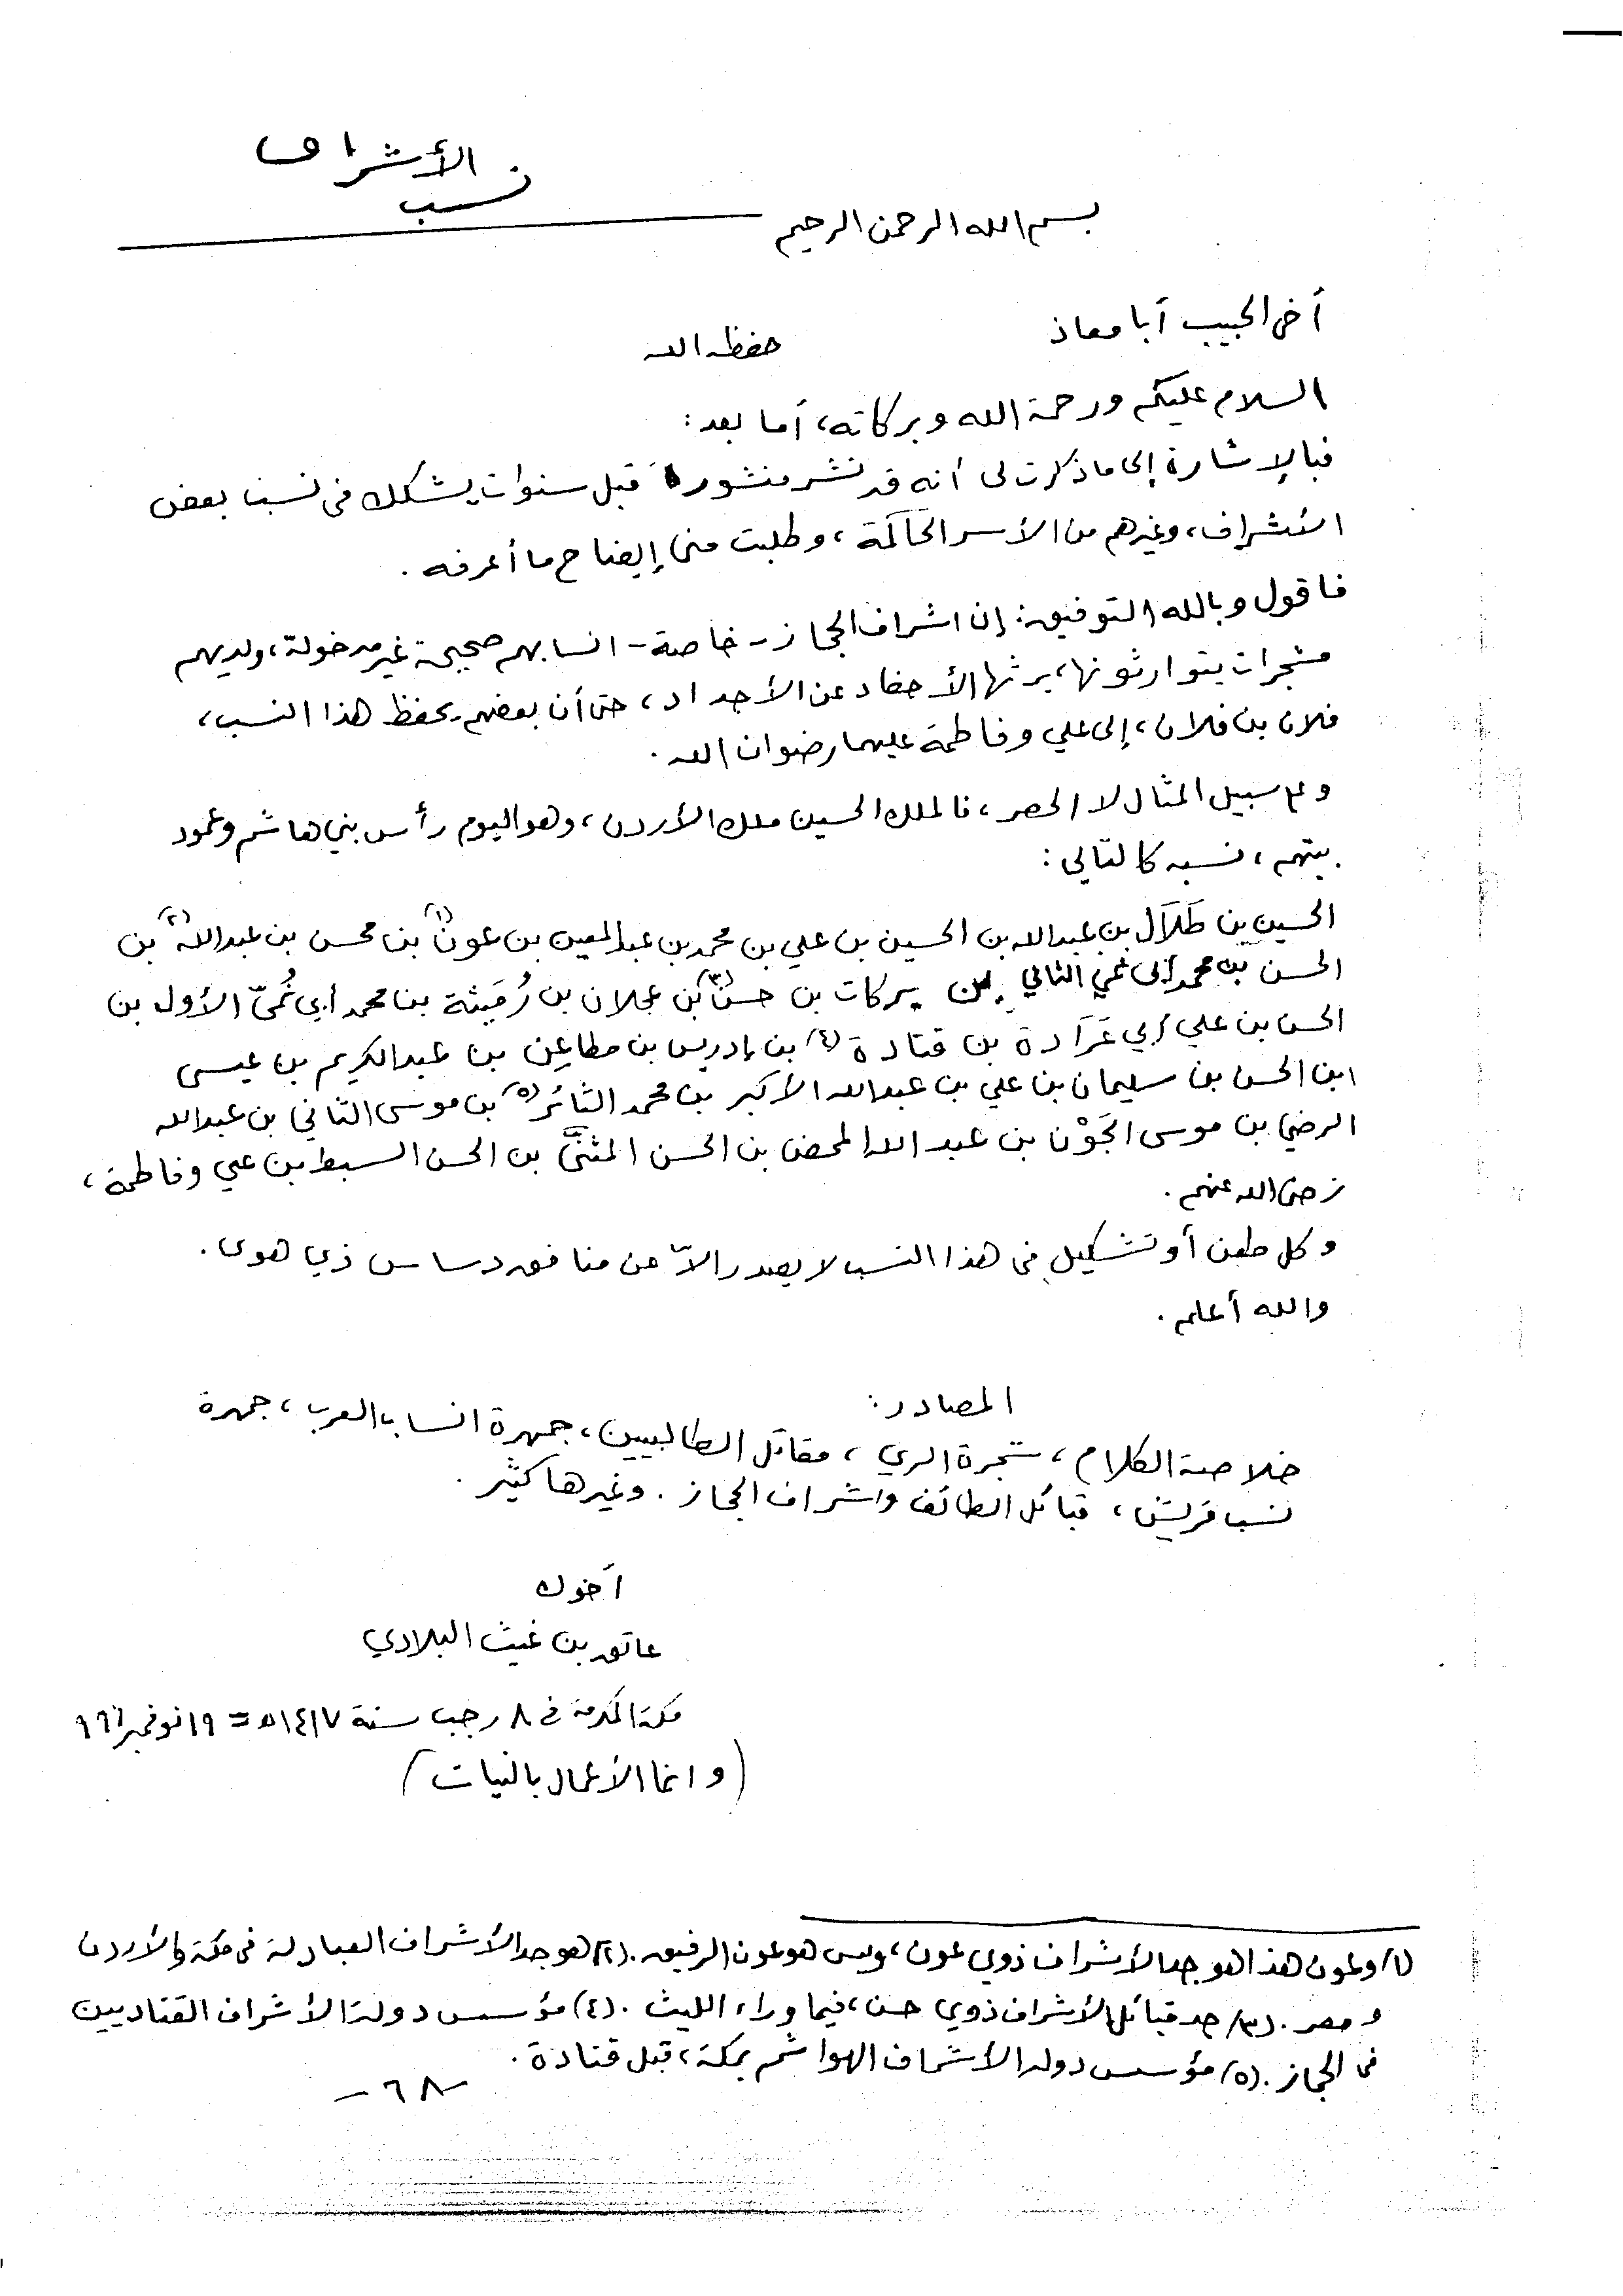 الأشراف
نسب
بسم الله الرحمن الرحيم
أخي الحبيب أبا معاذ
حفظه الله
السلام عليكم ورحمة الله وبركاته، أما بعد:
فبالإشارة إلى ما ذكرت لي أنه قد نشر منشورا قبل سنوات يشكك في نسب بعض
الأشراف، وغيرهم من الأسر الحاكمة، وطلبت مني إيضاح ما أعرفه.
فاقول وبالله التوفيق: إن اشراف الحجاز - خاصة - انسابهم صحيحة غير مدخولة، ولديهم
مشجرات يتوارثونها، يرثها الأحفاد عن الأجداد، حتى أن بعضهم يحفظ هذا النسب،
فلان بن فلان، إلى علي وفاطمة عليهما رضوان الله.
وعلى سبيل المثال لا الحصر، فالملك الحسين ملك الأردن، وهو اليوم رأس بني هاشم وعمود
بيتهم، نسبه كالتالي:
الحسين بن طَلَال بن عبدالله بن الحسين بن علي بن محمد بن عبدالمعين بن عون(١) بن محسن بن عبدالله(٢) بن
الحسن بن محمد أبي نمي الثاني بن بركات بن حسن(٣) بن عجلان بن رُمَيثة بن محمد أبي نُميّ الأول بن
الحسن بن علي أبي عَرَادة بن قتادة(٤) بن إدريس بن مطاعِن بن عبدالكريم بن عيسى
ابن الحسن بن سليمان بن علي بن عبدالله الأكبر بن محمد الثائر(٥) بن موسى الثاني بن عبدالله
الرضي بن موسى الجَوْن بن عبدالله المحض بن الحسن المثنَّى بن الحسن السبط بن علي وفاطمة،
رضي الله عنهم.
وكل طعن أو تشكيك في هذا النسب لا يصدر الاّ عن منافق دساس ذي هوى.
والله أعلم.
المصادر:
خلاصة الكلام، شجرة الري، مقاتل الطالبيين، جمهرة انساب العرب، جمهرة
نسب قريش، قبائل الطائف واشراف الحجاز. وغيرها كثير.
أخوك
عاتق بن غيث البلادي
مكة المكرمة في ٨ رجب سنة ١٤١٧هـ = ١٩ نوفمبر ٩٦
(وانما الأعمال بالنيات)
(١) وعون هذا هو جد الأشراف ذوي عون، وليس هو عون الرفيق. (٢) هو جد الأشراف العبادلة في مكة والأردن
و مصر. (٣) جد قبائل الأشراف ذوي حسن، فيما وراء الليث. (٤) مؤسس دولة الأشراف القتاديين
في الحجاز. (٥) مؤسس دولة الأشراف الهواشم بمكة، قبل قتادة.
- ٦٨ -